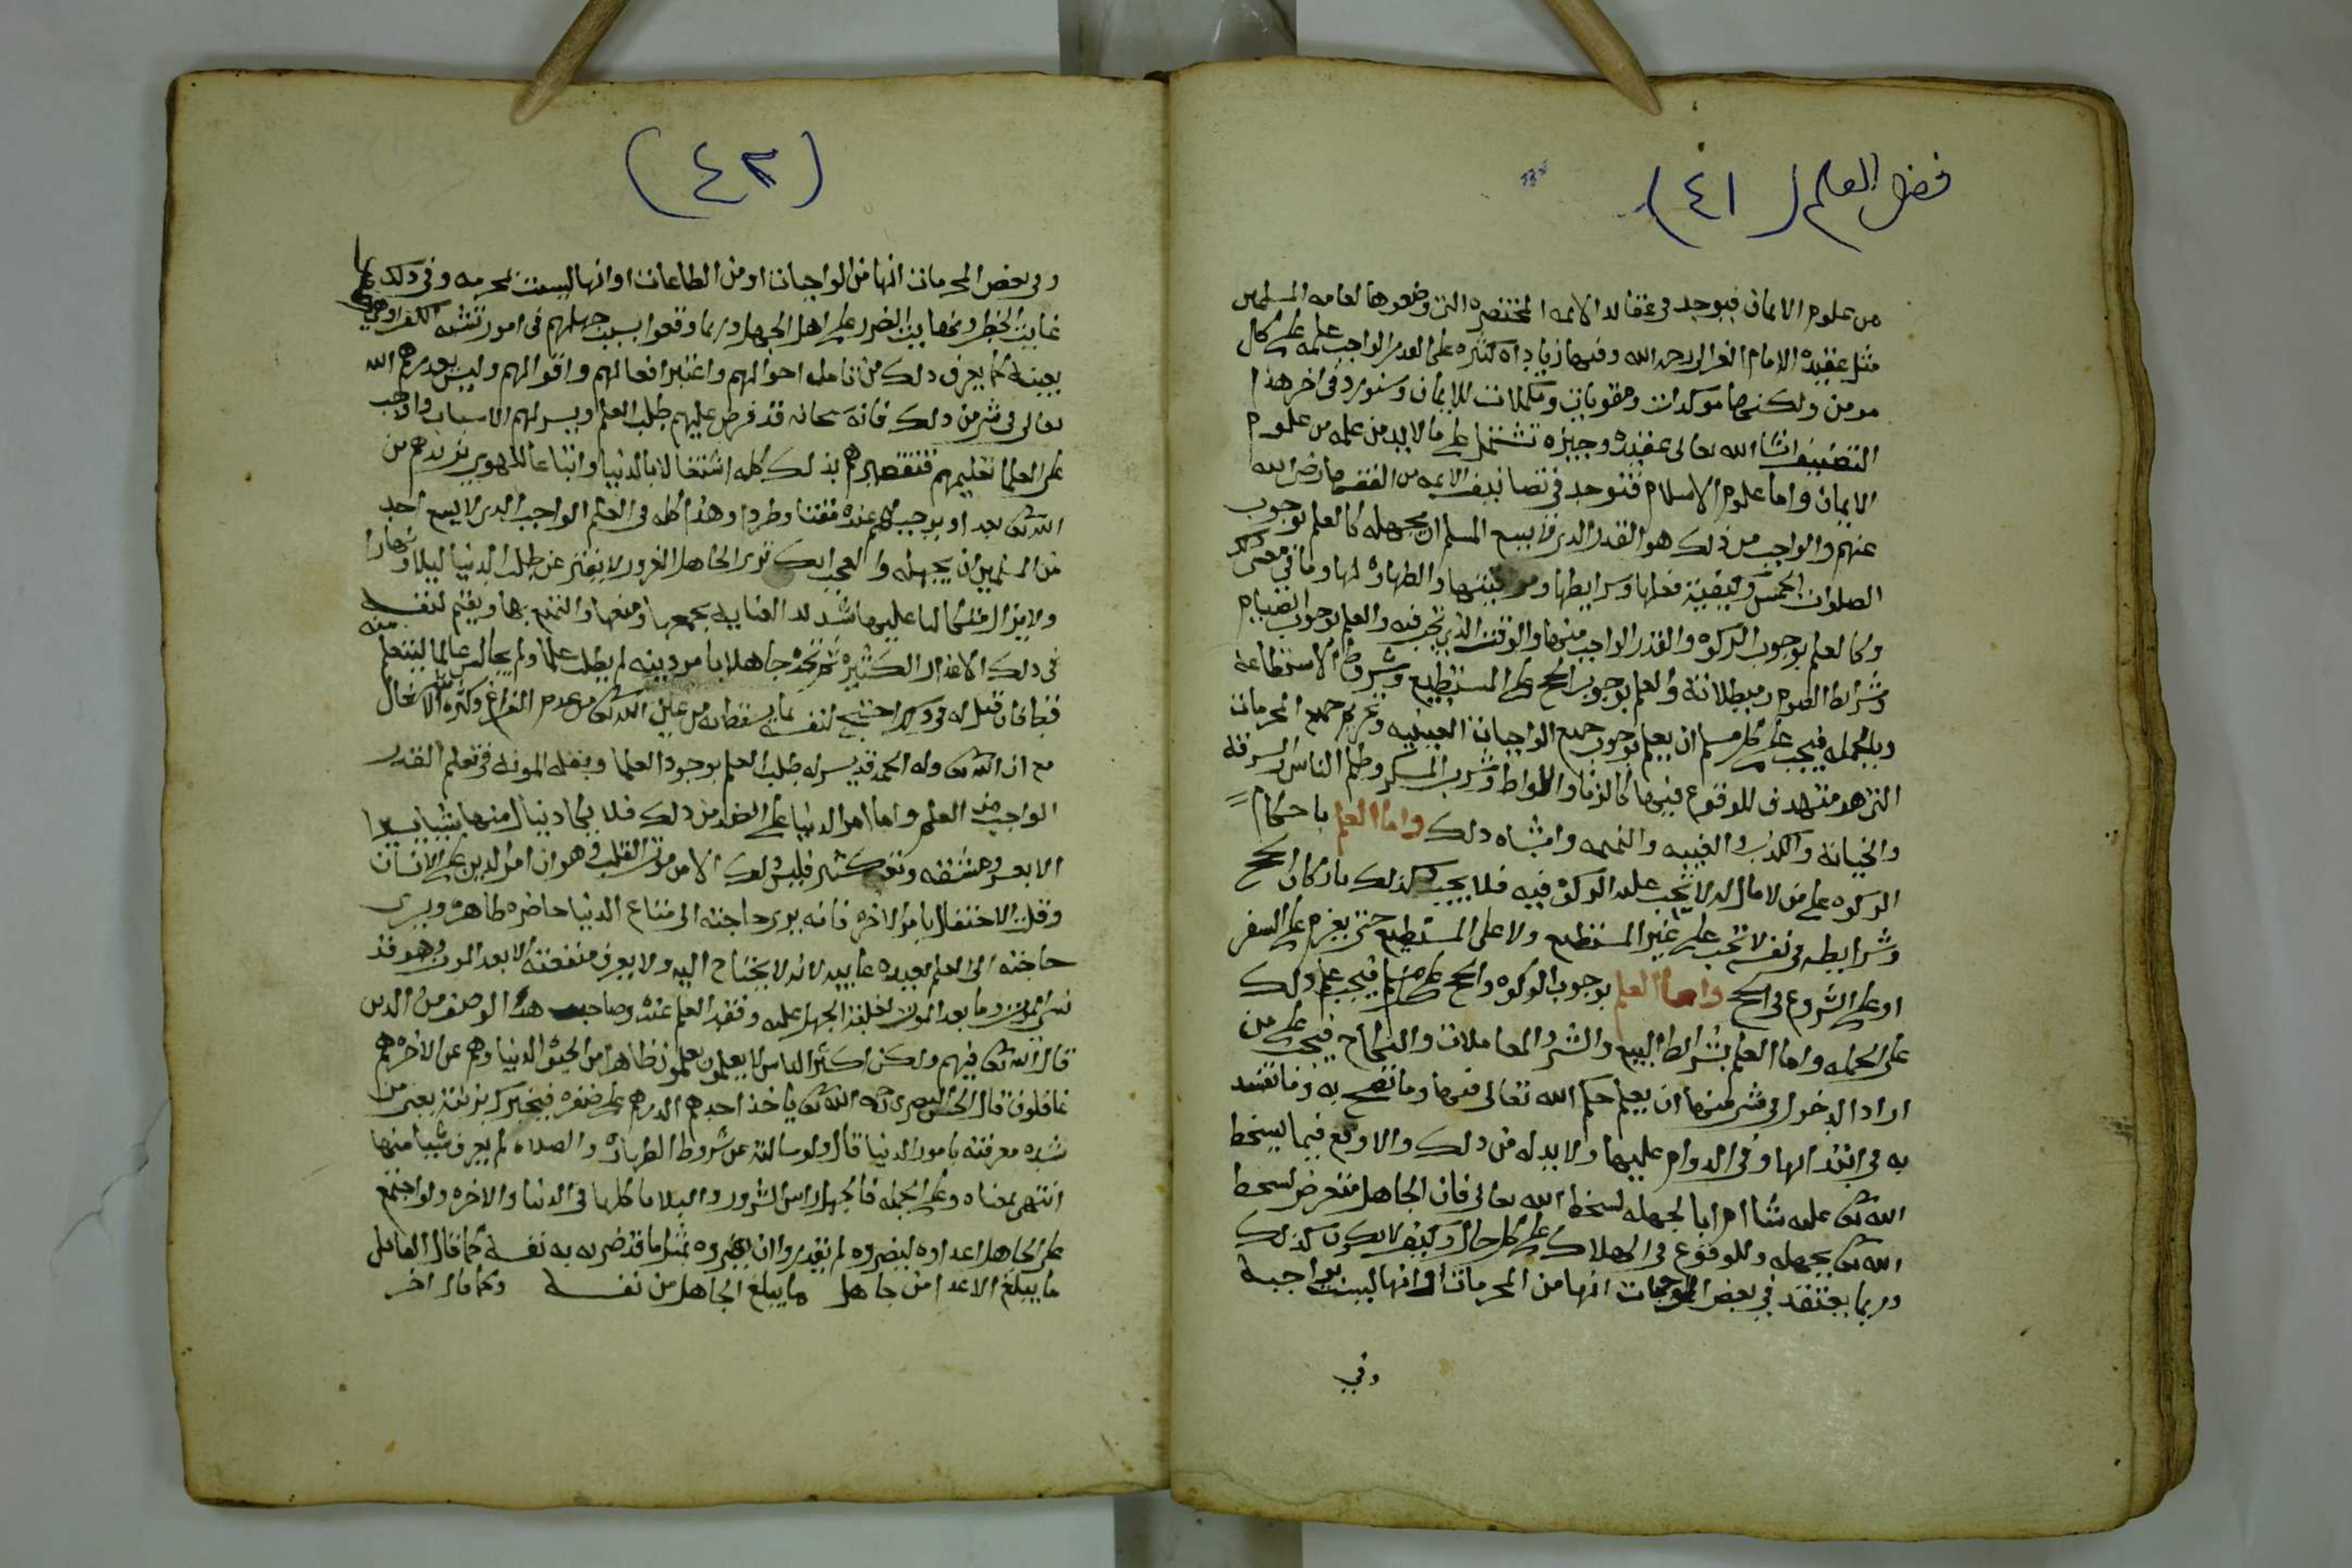 فضل العلم (٤١)
من علوم الايمان فيوجد في عقائد الايمه المختصره التي وضعوها لعامه المسلمين
مثل عقيده الامام الغزالي رحمه الله وفيها زيادات كثيره على القدر الواجب علمه على كل
مومن ولكنها موكدات ومقويات ومكملات للايمان وسنورد في اخر هذا
التصنيف انشا الله تعالى عقيده وجيزه تشتمل على ما لا بد من علمه من علوم
الايمان واما علوم الاسلام فتوجد في تصانيف الايمه من الفقها رضي الله
عنهم والواجب من ذلك هو القدر الذي لا يسع المسلم ان يجهله كالعلم بوجوب
الصلوات الخمس وكيفية فعلها وشرايطها ومواقيتها والطهاره لها وما في معنى ذلك
وكالعلم بوجوب الزكوه والقدر الواجب منها والوقت الذي تجب فيه والعلم بوجوب الصيام
وشرائط الصوم ومبطلاته والعلم بوجوب الحج على المستطيع وشروط الاستطاعة
وبالجمله فيجب على كل مسلم ان يعلم بوجوب جميع الواجبات العينيه وتحريم جميع المحرمات
التي هو مستهدف للوقوع فيها كالزنا واللواط وشرب المسكر وظلم الناس والسرقة
والخيانة والكذب والغيبه والنميمه واشباه ذلك واما العلم باحكام
الزكوه على من لا مال له لا تجب عليه الزكوة فيه فلا يجب كذلك باركان الحج
وشرايطه في نفسه لا تجب على غير المستطيع ولا على المستطيع حتى يعزم على السفر
او على الشروع في الحج واما العلم بوجوب الزكوه والحج على كل مسلم فيجب علم ذلك
على الجمله واما العلم بشرائط البيع والشرا والمعاملات والنكاح فيجب على من
اراد الدخول في شي منها ان يعلم حكم الله تعالى فيها وما تصح به وما تفسد
به في ابتدائها وفي الدوام عليها ولا بد له من ذلك والا وقع فيما يسخط
الله تعالى عليه شا ام ابا لجهله بسخط الله تعالى فان الجاهل متعرض لسخط
الله تعالى بجهله وللوقوع في الهلاك على كل حال وكيف لا يكون كذلك
وربما يعتقد في بعض الواجبات انها من المحرمات او انها ليست بواجبة
وفي
(٤٢)
وفي بعض المحرمات انها من الواجبات او من الطاعات او انها ليست بمحرمه وفي ذلك
غاية الخطر ونهاية الضرر على اهل الجهل وربما وقعوا بسبب جهلهم في امور تشبه الكفر او هي
بعينه كما يعرف ذلك من تامل احوالهم واعتبر افعالهم واقوالهم وليس يعذرهم الله
تعالى في شي من ذلك فانه سبحانه قد فرض عليهم طلب العلم ويسر لهم الاسباب واوجب
على العلما تعليمهم فتقصيرهم بذلك كله اشتغالا بالدنيا واتباعا للهوى يزيدهم من
الله تعالى بعدا ويوجب لهم عنده مقتا وطردا وهذا كله في العلم الواجب الذي لا يسع احد
من المسلمين ان يجهله والعجب انك ترى الجاهل المغرور لا يفتر عن طلب الدنيا ليلا ونهارا
ولا يزال متكالبا عليها شديد العناية بجمعها ومنعها والتمتع بها ويقيم لنفسه
في ذلك الاعذار الكثيره ثم تجده جاهلا بامر دينه لم يطلب علما ولم يجالس عالما ليتعلم منه
قط فان قيل له في ذلك احتج لنفسه بما يسقطه من عين الله تعالى من عدم الفراغ وكثرة الاشغال
مع ان الله تعالى وله الحمد قد يسر له طلب العلم بوجود العلما وبقله المونة في تعلم القدر
الواجب من العلم واما امر الدنيا على الضد من ذلك فلا يكاد ينال منها شيئا يسيرا
الا بعد مشقه وتعب كثير فليس ذلك الا من موت القلب وهوان امر الدين على الانسان
وقلة الاحتفال بامر الاخره فانه يرى حاجته الى متاع الدنيا حاضره ظاهره ويرى
حاجته الى العلم بعيده غايبه لانه لا يحتاج اليه ولا يعرف منفعته الا بعد الموت وهو قد
نسي الموت وما بعد الموت لغلبة الجهل عليه وفقد العلم عنده وصاحب هذا الوصف من الذين
قال الله تعالى فيهم ولكن اكثر الناس لا يعلمون يعلمون ظاهرا من الحيوة الدنيا وهم عن الاخره هم
غافلون قال الحسن البصري رحمه الله تعالى ياخذ احدهم الدرهم على ظفره فيخبرك بزنته يعني من
شده معرفته بامور الدنيا قال ولو سالته عن شروط الطهاره والصلاه لم يعرف شيئا منها
انتهى بمعناه وعلى الجمله فالجهل راس الشرور والبلايا كلها في الدنيا والاخره ولو اجتمع
على الجاهل اعداوه ليضروه لم يقدروا ان يضروه بمثل ما قد ضر به نفسه كما قال القايل
ما يبلغ الاعدا من جاهل ما يبلغ الجاهل من نفسه وكما قال اخر